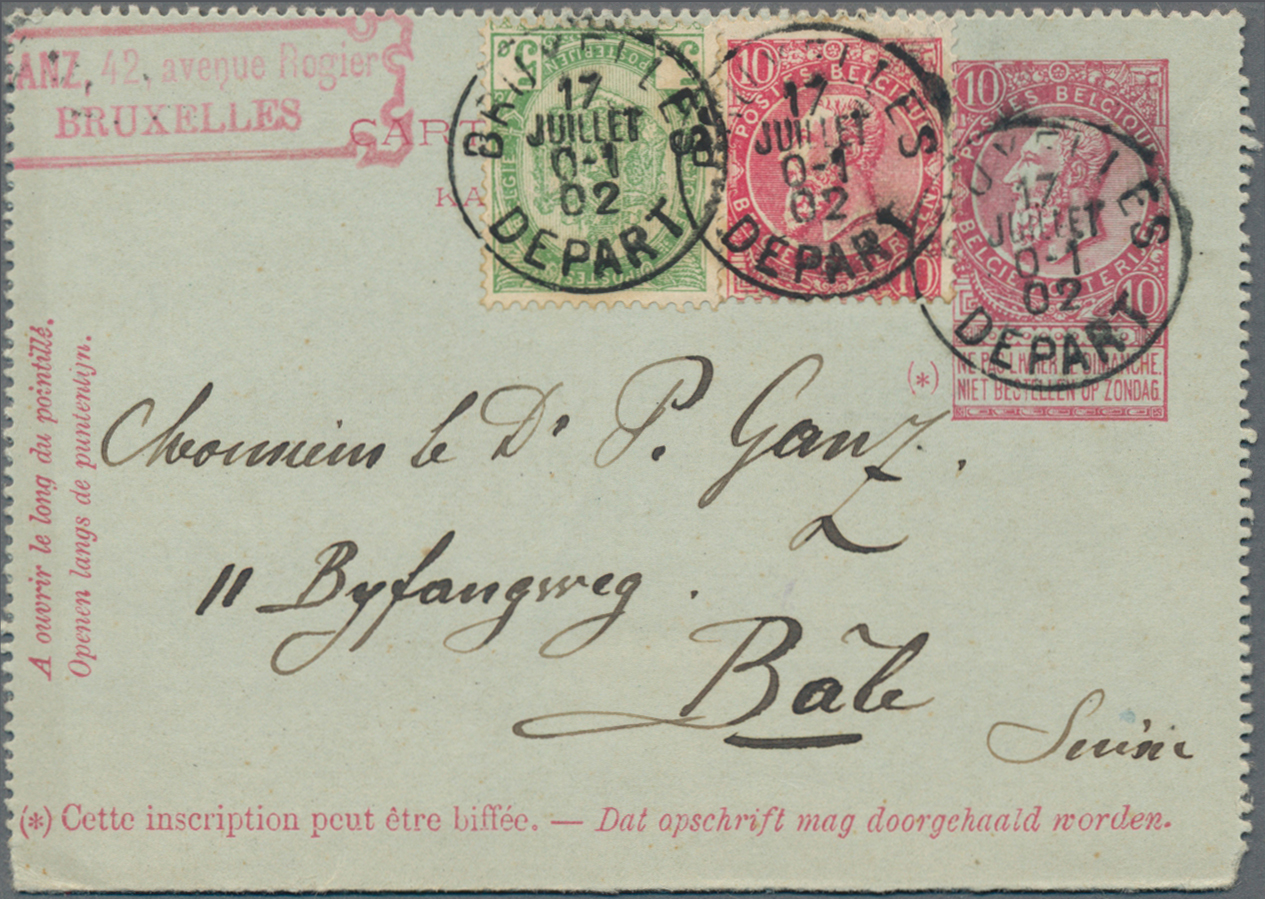 ANZ, 42, avenue Rogier
BRUXELLES
CART
KA
5 5
POSTERIJEN
BRUXELLES
17
JUILLET
0-1
02
DEPART
10
POSTES BELGIQUE
BRUXELLES
17
JUILLET
0-1
02
DEPART
10
10
POSTES BELGIQUE
BRUXELLES
17
JUILLET
0-1
02
DEPART
BELGIË POSTERIJEN
10
(*)
NE PAS LIVRER LE DIMANCHE.
NIET BESTELLEN OP ZONDAG.
A ouvrir le long du pointillé.
Openen langs de puntenlijn.
Monsieur le Dr P. Ganz.
11 Byfangweg.
Bâle
Suisse
(*) Cette inscription peut être biffée. — Dat opschrift mag doorgehaald worden.